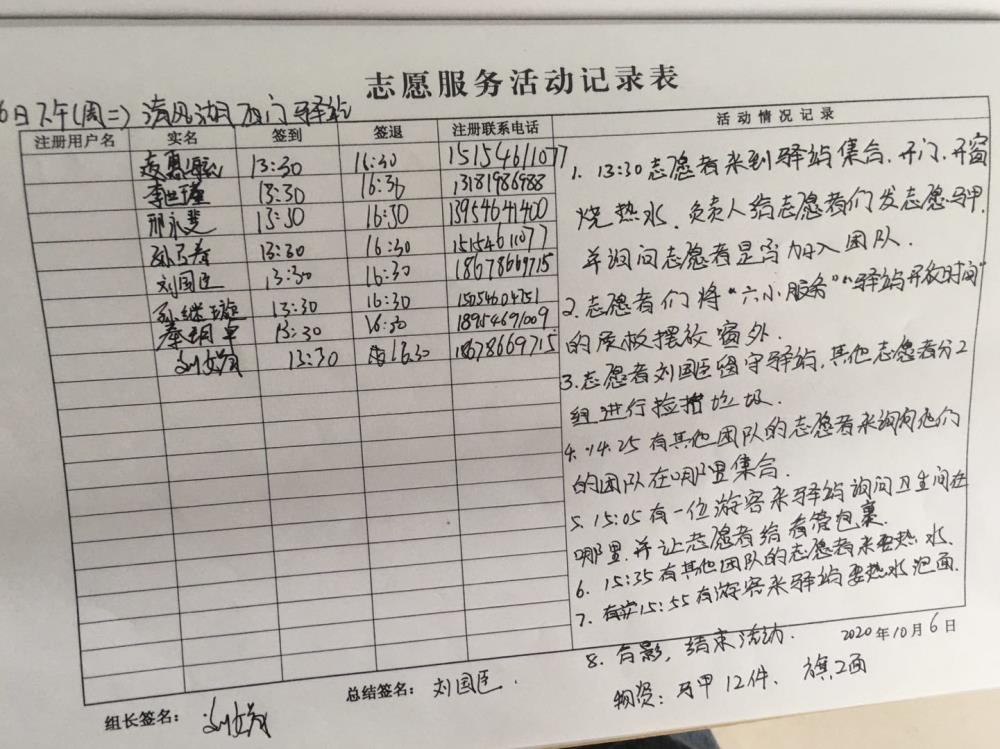 志愿服务活动记录表
6日下午(周二)清风湖西门驿站
注册用户名 实名 签到 签退 注册联系电话 活动情况记录
13:30 16:30 15154611077
李世瑾 13:30 16:30 13181986988
邢永斐 13:30 16:30 13954641400
13:30 16:30 15154611077
刘国臣 13:30 16:30 18678669715
孙继璇 13:30 16:30 15054604751
秦玥罡 13:30 16:30 18954691009
刘 13:30 16.30 18678669715
1. 13:30志愿者来到驿站集合.开门、开窗
烧热水、负责人给志愿者们发志愿马甲.
并询问志愿者是否加入团队.
2.志愿者们将“六小服务”“驿站开放时间”
的展板摆放窗外.
3.志愿者刘国臣留守驿站,其他志愿者分2
组进行捡拾垃圾.
4. 14.25有其他团队的志愿者来询问他们
的团队在哪里集合.
5. 15:05有一位游客来驿站询问卫生间在
哪里.并让志愿者给看管包裹.
6. 15:35有其他团队的志愿者来要热水、
7. 15:55有游客来驿站要热水泡面.
8. 合影,结束活动.
2020年10月6日
物资:马甲12件、旗2面
组长签名: 刘
总结签名: 刘国臣.